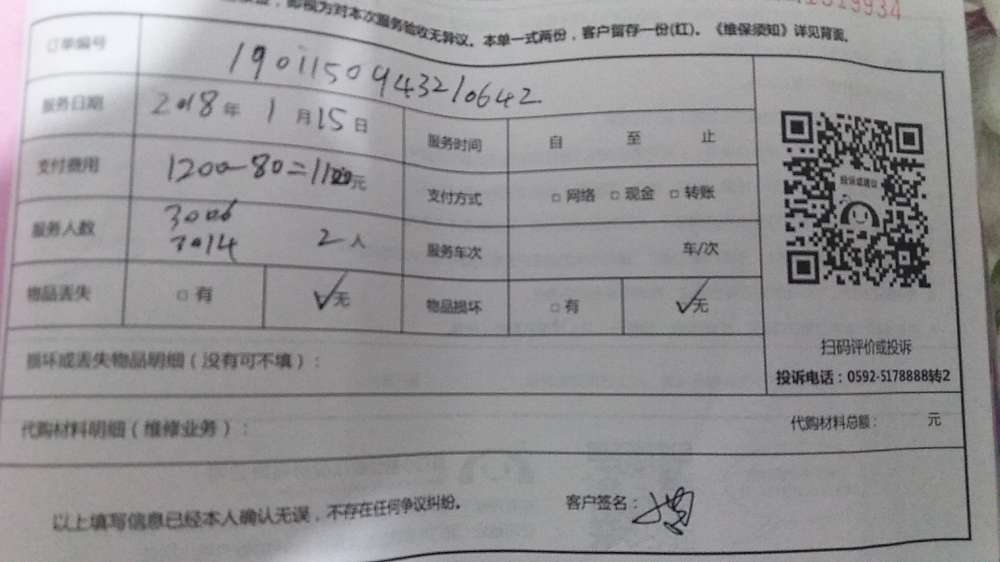 即视为对本次服务验收无异议。本单一式两份，客户留存一份(红)。《维保须知》详见背面。
订单编号 1901150943210642
服务日期 2018年 1月15日 服务时间 自 至 止
支付费用 1200-80=1120元 支付方式 □网络 □现金 □转账
服务人数 3006
3014 2人 服务车次 车/次
物品丢失 □有 ✓无 物品损坏 □有 ✓无
投诉或建议
扫码评价或投诉
投诉电话：0592-5178888转2
损坏或丢失物品明细（没有可不填）：
代购材料明细（维修业务）： 代购材料总额： 元
以上填写信息已经本人确认无误，不存在任何争议纠纷。 客户签名：